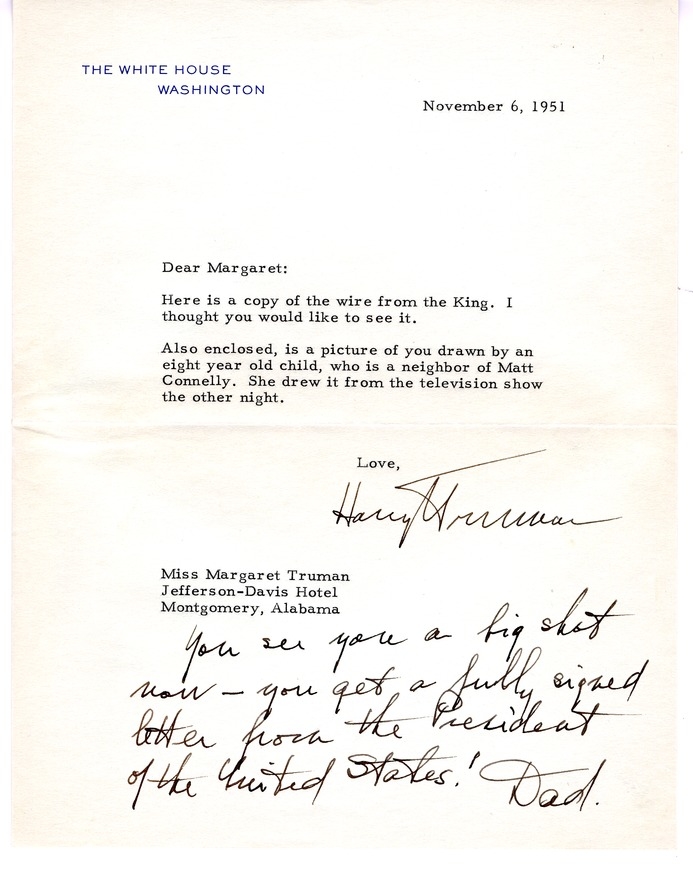 THE WHITE HOUSE
WASHINGTON
November 6, 1951
Dear Margaret:
Here is a copy of the wire from the King. I
thought you would like to see it.
Also enclosed, is a picture of you drawn by an
eight year old child, who is a neighbor of Matt
Connelly. She drew it from the television show
the other night.
Love,
Harry Truman
Miss Margaret Truman
Jefferson-Davis Hotel
Montgomery, Alabama
You see you're a big shot
now — you get a fully signed
letter from the President
of the United States! Dad.